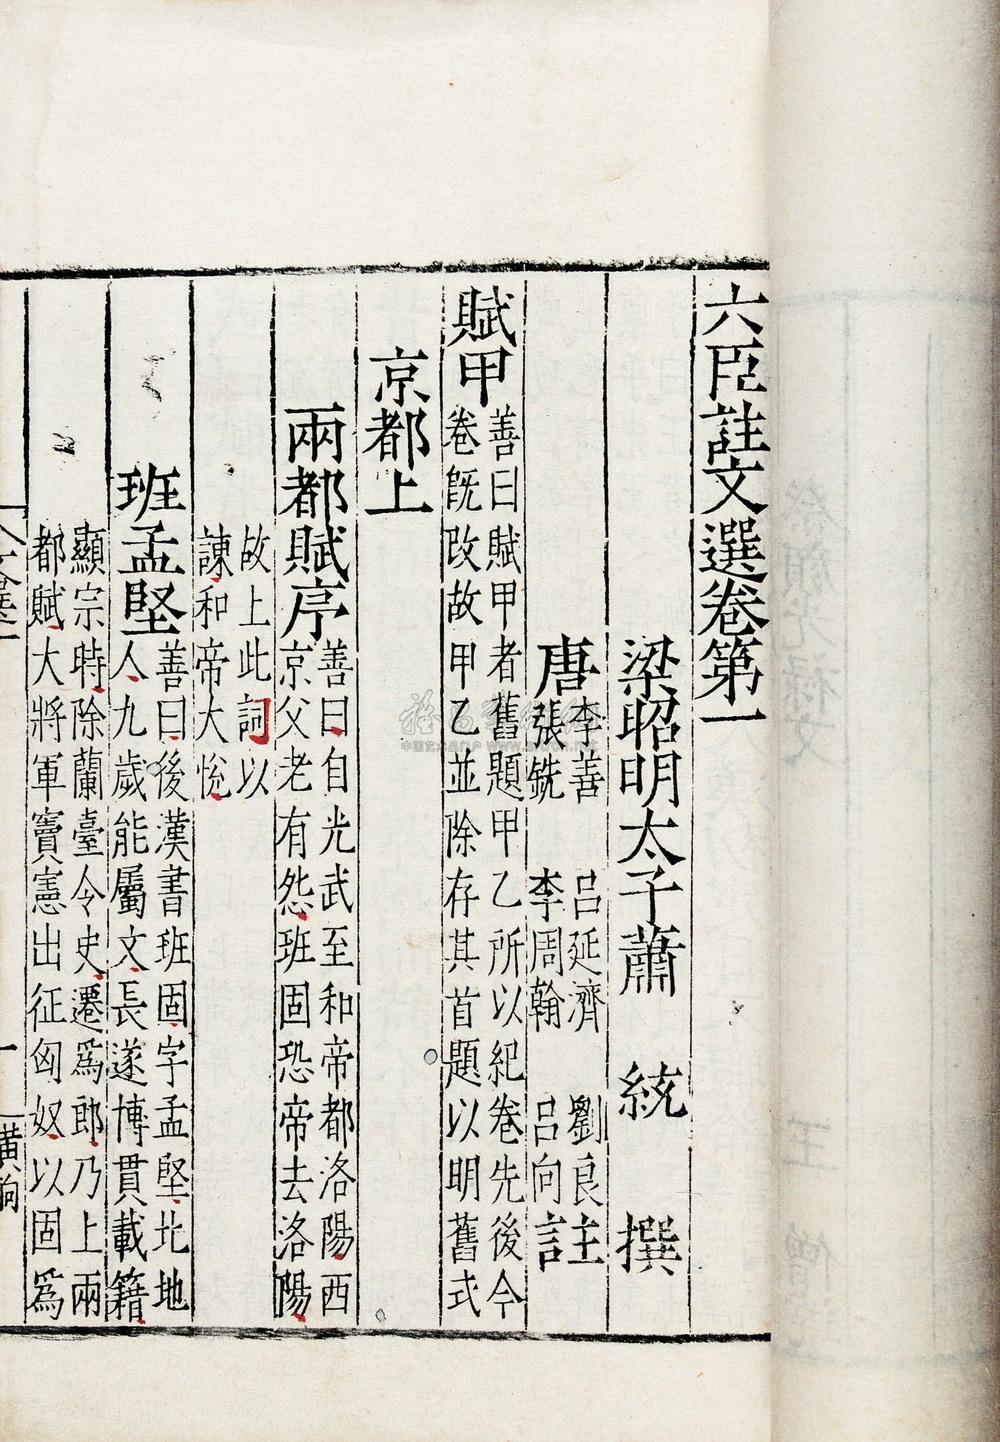 六臣註文選卷第一
梁昭明太子蕭 統 撰
唐 李善 呂延濟 劉良 張銑 李周翰 呂向 註
賦甲 善曰賦甲者舊題甲乙所以紀卷先後今
卷旣改故甲乙並除存其首題以明舊式
京都上
兩都賦序 善曰自光武至和帝都洛陽西
京父老有怨班固恐帝去洛陽
故上此詞以
諫和帝大悅
班孟堅 善曰後漢書班固字孟堅北地
人九歲能屬文長遂博貫載籍
顯宗時除蘭臺令史遷爲郎乃上兩
都賦大將軍竇憲出征匈奴以固爲